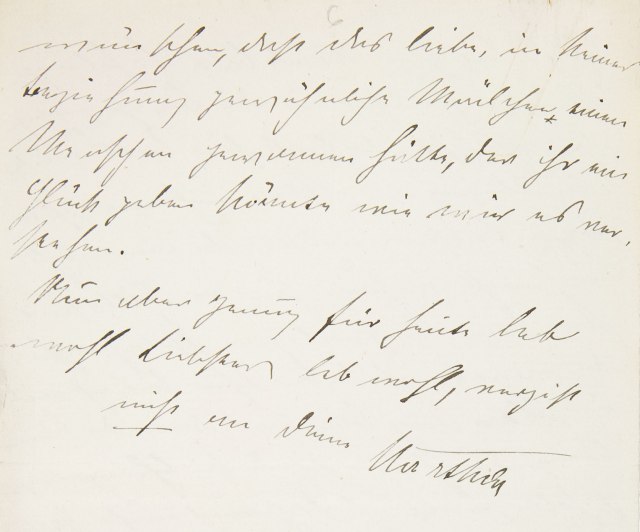 wünschen, daß das liebe, in keiner
Beziehung gewöhnliche Mädchen einen
Menschen gewonnen hätte, der ihr ein
Glück geben könnte wie wir es ver,
stehen.
Nun aber genug für heute leb
wohl Liebster leb wohl, vergiß
nicht an Deine
Martha